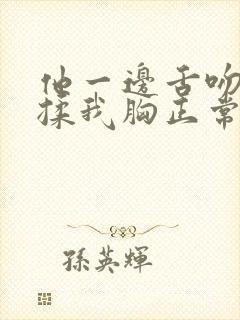 他一邊舌吻
揉我胸正常
孫英輝